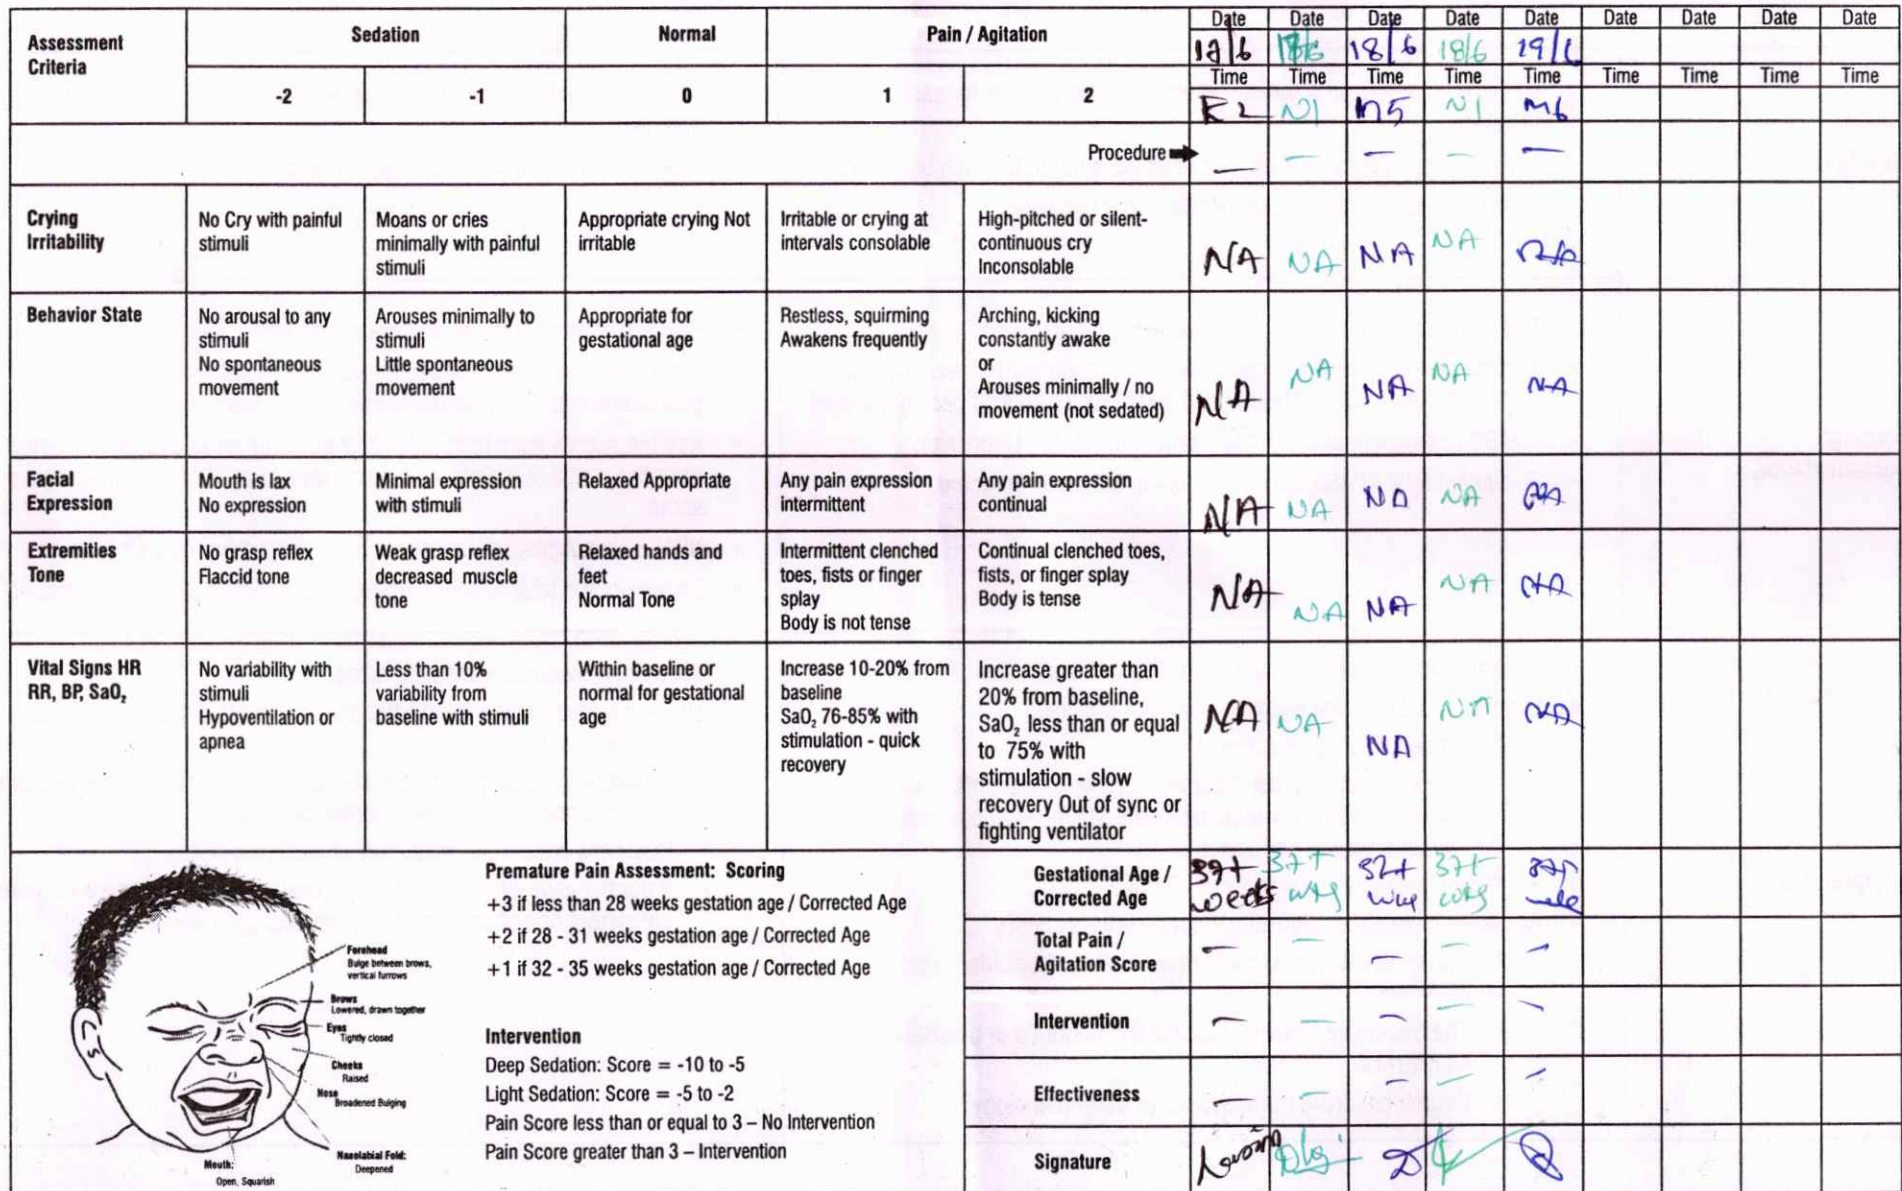 Assessment Criteria Sedation Normal Pain / Agitation Date Date Date Date Date Date Date Date Date
17/6 18/6 18/6 18/6 19/6
Time Time Time Time Time Time Time Time Time
-2 -1 0 1 2 E2 N1 M5 N1 M6
Procedure — — — — —
Crying Irritability
No Cry with painful stimuli
Moans or cries minimally with painful stimuli
Appropriate crying Not irritable
Irritable or crying at intervals consolable
High-pitched or silent-continuous cry Inconsolable
NA NA NA NA NA
Behavior State
No arousal to any stimuli
No spontaneous movement
Arouses minimally to stimuli
Little spontaneous movement
Appropriate for gestational age
Restless, squirming
Awakens frequently
Arching, kicking constantly awake
or
Arouses minimally / no movement (not sedated)
NA NA NA NA NA
Facial Expression
Mouth is lax
No expression
Minimal expression with stimuli
Relaxed Appropriate
Any pain expression intermittent
Any pain expression continual
NA NA NA NA NA
Extremities Tone
No grasp reflex
Flaccid tone
Weak grasp reflex decreased muscle tone
Relaxed hands and feet
Normal Tone
Intermittent clenched toes, fists or finger splay
Body is not tense
Continual clenched toes, fists, or finger splay
Body is tense
NA NA NA NA NA
Vital Signs HR RR, BP, SaO₂
No variability with stimuli
Hypoventilation or apnea
Less than 10% variability from baseline with stimuli
Within baseline or normal for gestational age
Increase 10-20% from baseline
SaO₂ 76-85% with stimulation - quick recovery
Increase greater than 20% from baseline, SaO₂ less than or equal to 75% with stimulation - slow recovery Out of sync or fighting ventilator
NA NA NA NA NA
Forehead
Bulge between brows, vertical furrows
Brows
Lowered, drawn together
Eyes
Tightly closed
Cheeks
Raised
Nose
Broadened Bulging
Nasolabial Fold:
Deepened
Mouth:
Open, Squarish
Premature Pain Assessment: Scoring
+3 if less than 28 weeks gestation age / Corrected Age
+2 if 28 - 31 weeks gestation age / Corrected Age
+1 if 32 - 35 weeks gestation age / Corrected Age
Intervention
Deep Sedation: Score = -10 to -5
Light Sedation: Score = -5 to -2
Pain Score less than or equal to 3 – No Intervention
Pain Score greater than 3 – Intervention
Gestational Age / Corrected Age 37+ weeks 37+ wks 37+ 37+ wks 37+
Total Pain / Agitation Score — — — — —
Intervention — — — — —
Effectiveness — — — — —
Signature